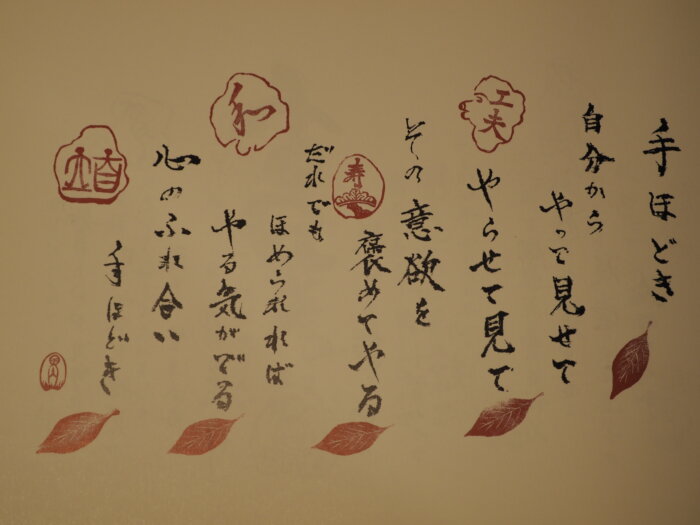 手ほどき
自分から
やって見せて
工夫
やらせて見て
その意欲を
寿
褒めてやる
だれでも
ほめられれば
和
やる気がでる
心のふれ合い
手ほどき